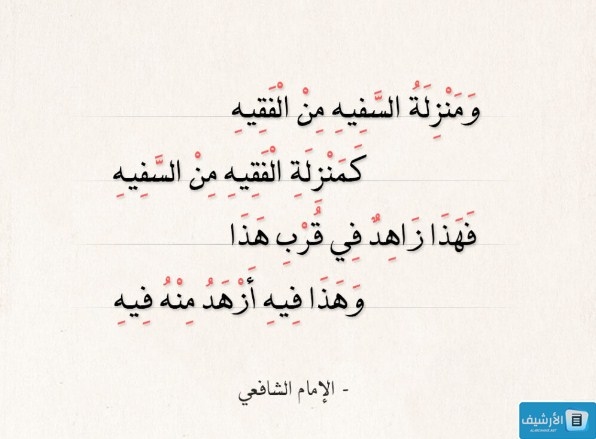 وَمَنْزِلَةُ السَّفِيهِ مِنْ الْفَقِيهِ
كَمَنْزِلَةِ الْفَقِيهِ مِنْ السَّفِيهِ
فَهَذَا زَاهِدٌ فِي قُرْبِ هَذَا
وَهَذَا فِيهِ أَزْهَدُ مِنْهُ فِيهِ
- الإمام الشافعي
الأرشيف